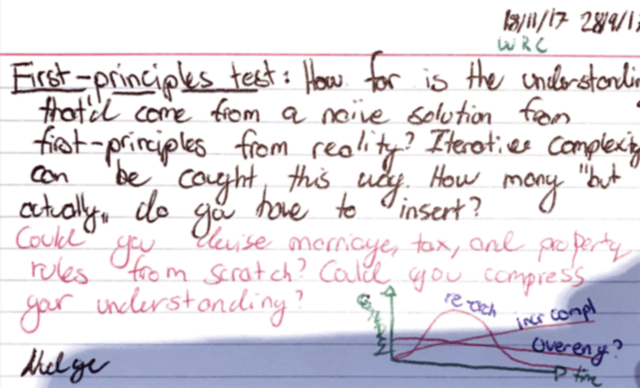 18/11/17 28/9/1
WRC
First-principles test: How far is the understandi
that'd come from a naive solution from
first-principles from reality? Iterative complexity
can be caught this way. How many "but
actually" do you have to insert?
Could you devise marriage, tax, and property
rules from scratch? Could you compress
your understanding?
incr compl
Overeng?
time